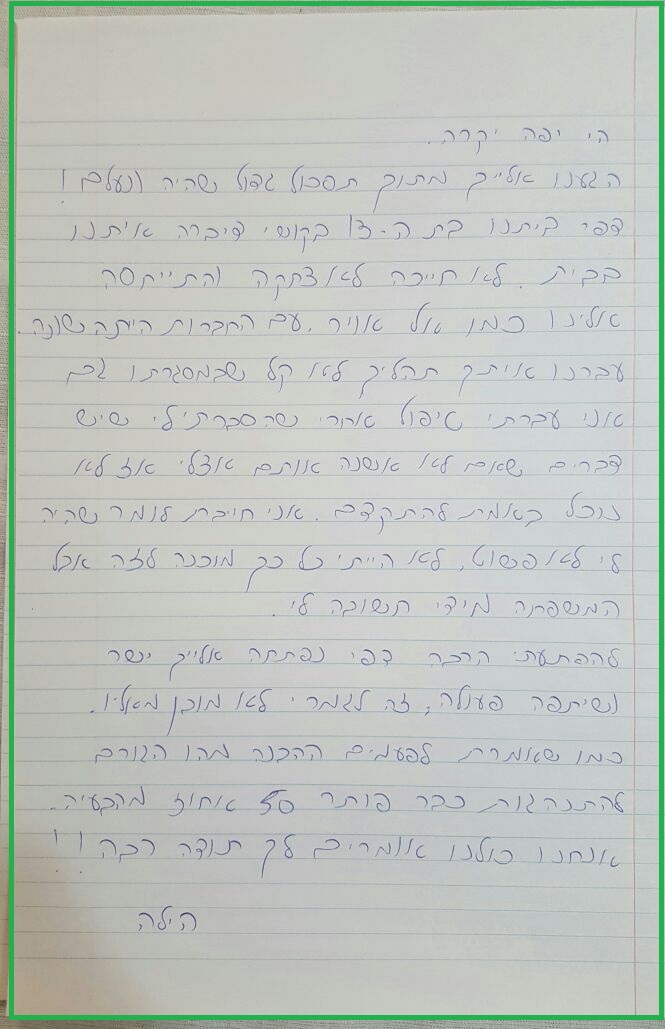 היי יפה יקרה.
הגענו אלייך מתוך תסכול גדול שהיה ונעלם!
דפי ביתנו בת ה-13 בקושי דיברה איתנו
בבית. לא חייכה לא צחקה והתייחסה
אלינו כמו אל אוויר. עם החברות היתה שונה.
עברנו איתך תהליך לא קל שבמסגרתו גם
אני עברתי טיפול אחרי שהסברת לי שיש
דברים שאם לא אשנה אותם אצלי אז לא
נוכל באמת להתקדם. אני חייבת לומר שהיה
לי לא פשוט, לא הייתי כל כך מוכנה לזה אבל
המשפחה מידי חשובה לי.
להפתעתי הרבה דפי נפתחה אלייך ישר
ושיתפה פעולה, זה לגמרי לא מובן מאליו.
כמו שאומרת לפעמים ההבנה מהו הגורם
להתנהגות כבר פותר 50 אחוז מהבעיה.
אנחנו כולנו אומרים לך תודה רבה!!
הילה